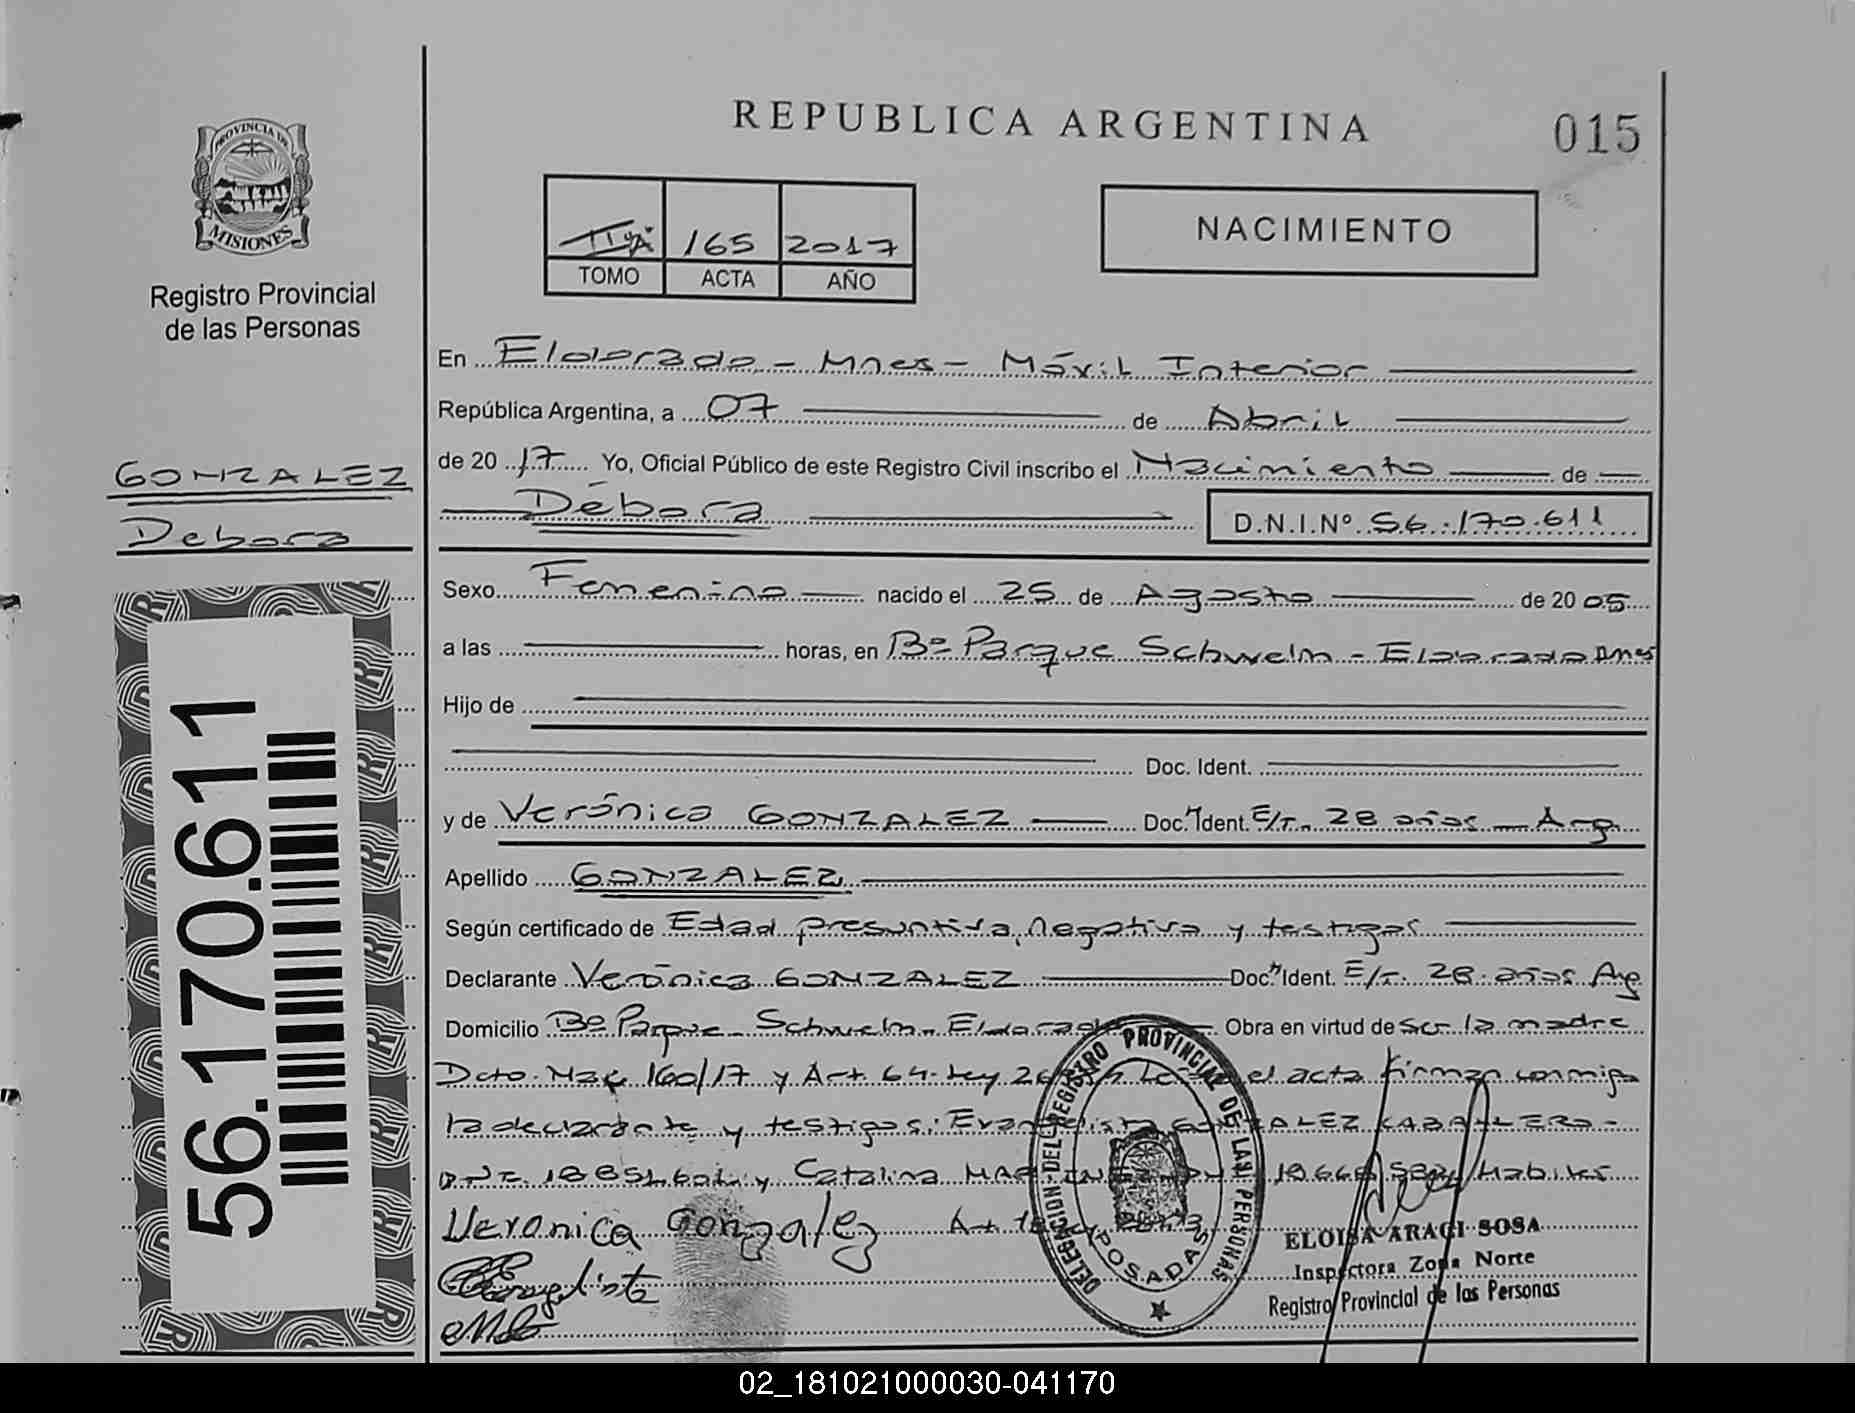 REPUBLICA ARGENTINA
015
PROVINCIA DE
MISIONES
Registro Provincial
de las Personas
165 2017
TOMO ACTA AÑO
NACIMIENTO
En Eldorado - Mnes - Móvil Interior
República Argentina, a 07 de Abril
de 2017 Yo, Oficial Público de este Registro Civil inscribo el Nacimiento de
GONZALEZ
Debora
Débora
D.N.I.Nº 56.170.611
Sexo Femenino nacido el 25 de Agosto de 2005
a las horas, en Bº Parque Schwelm - Eldorado Mnes
Hijo de
Doc. Ident.
y de Verónica GONZALEZ Doc. Ident. E/T. 28 años - Arg
Apellido GONZALEZ
Según certificado de Edad presuntiva, negativa y testigos
Declarante Verónica GONZALEZ Doc. Ident. E/T. 28 años Arg
Domicilio Bº Parque Schwelm - Eldorado Obra en virtud de ser la madre
Dcto. 160/17 y Art 64. Ley el acta firman conmigo
la declarante y testigos: Evangelista GONZALEZ CABALLERO -
y Catalina Habiles
Veronica Gonzalez
Evangelista
DELEGACION DEL REGISTRO PROVINCIAL DE LAS PERSONAS
POSADAS
ELOISA ARACI SOSA
Inspectora Zona Norte
Registro Provincial de las Personas
56.170.611
02_181021000030-041170